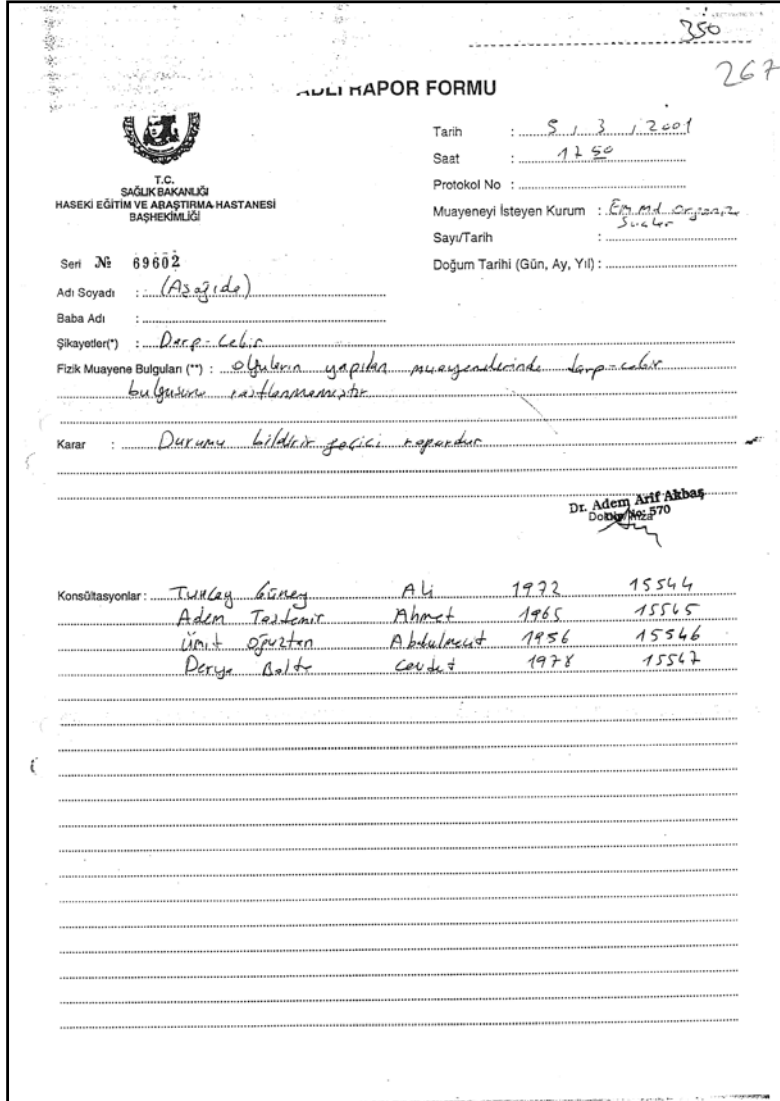 350
267
ADLİ RAPOR FORMU
T.C.
SAĞLIK BAKANLIĞI
HASEKİ EĞİTİM VE ARAŞTIRMA HASTANESİ
BAŞHEKİMLİĞİ
Seri № 69602
Tarih : 5 / 3 / 2001
Saat : 17 50
Protokol No :
Muayeneyi İsteyen Kurum : Em. Md. Organize
Suçlar
Sayı/Tarih :
Doğum Tarihi (Gün, Ay, Yıl) :
Adı Soyadı : (Aşağıda)
Baba Adı :
Şikayetler(*) : Darp-Cebir
Fizik Muayene Bulguları (**) : Olguların yapılan muayenelerinde darp-cebir
bulgusuna rastlanmamıştır
Karar : Durumu bildirir geçici rapordur
Dr. Adem Arif Akbaş
570
Konsültasyonlar : Tuncay Güney Ali 1972 15544
Adem Taşdemir Ahmet 1965 15545
Ümit Oğuztan Abdulmecit 1956 15546
Derya Cevdet 1978 15547